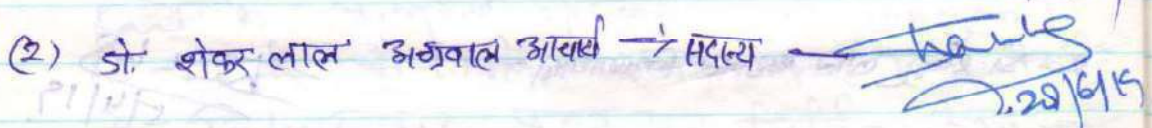 (2) डो. शेकर लाल अग्रवाल आचार्य → सदस्य
28/6/19